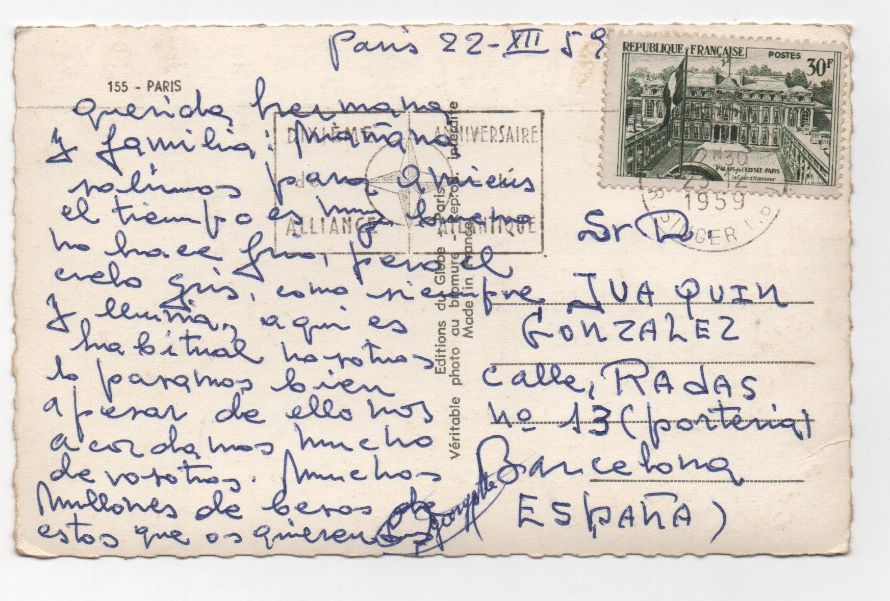 Paris 22-XII 59
REPUBLIQUE FRANÇAISE
POSTES
30F
PALAIS de l'ELYSEE-PARIS
la Cour d'Honneur
155 - PARIS
DIXIÈME ANNIVERSAIRE
de
ALLIANCE ATLANTIQUE
12
1959
querida hermana
y familia: mañana
salimos para Amiens
el tiempo es muy bueno
no hace frio, pero el
cielo gris, como siempre
y lluvia, aqui es
habitual nosotros
lo pasamos bien
apesar de ello nos
acordamos mucho
de vosotros. Muchos
millones de besos de
estos que os quieren
Editions du Globe - Paris
Véritable photo au bromure - Reprod. interdite
Made in France
Sr D.
JUAQUIN
GONZALEZ
calle, RADAS
nº 13 (porteria)
Barcelona
(ESPAÑA)